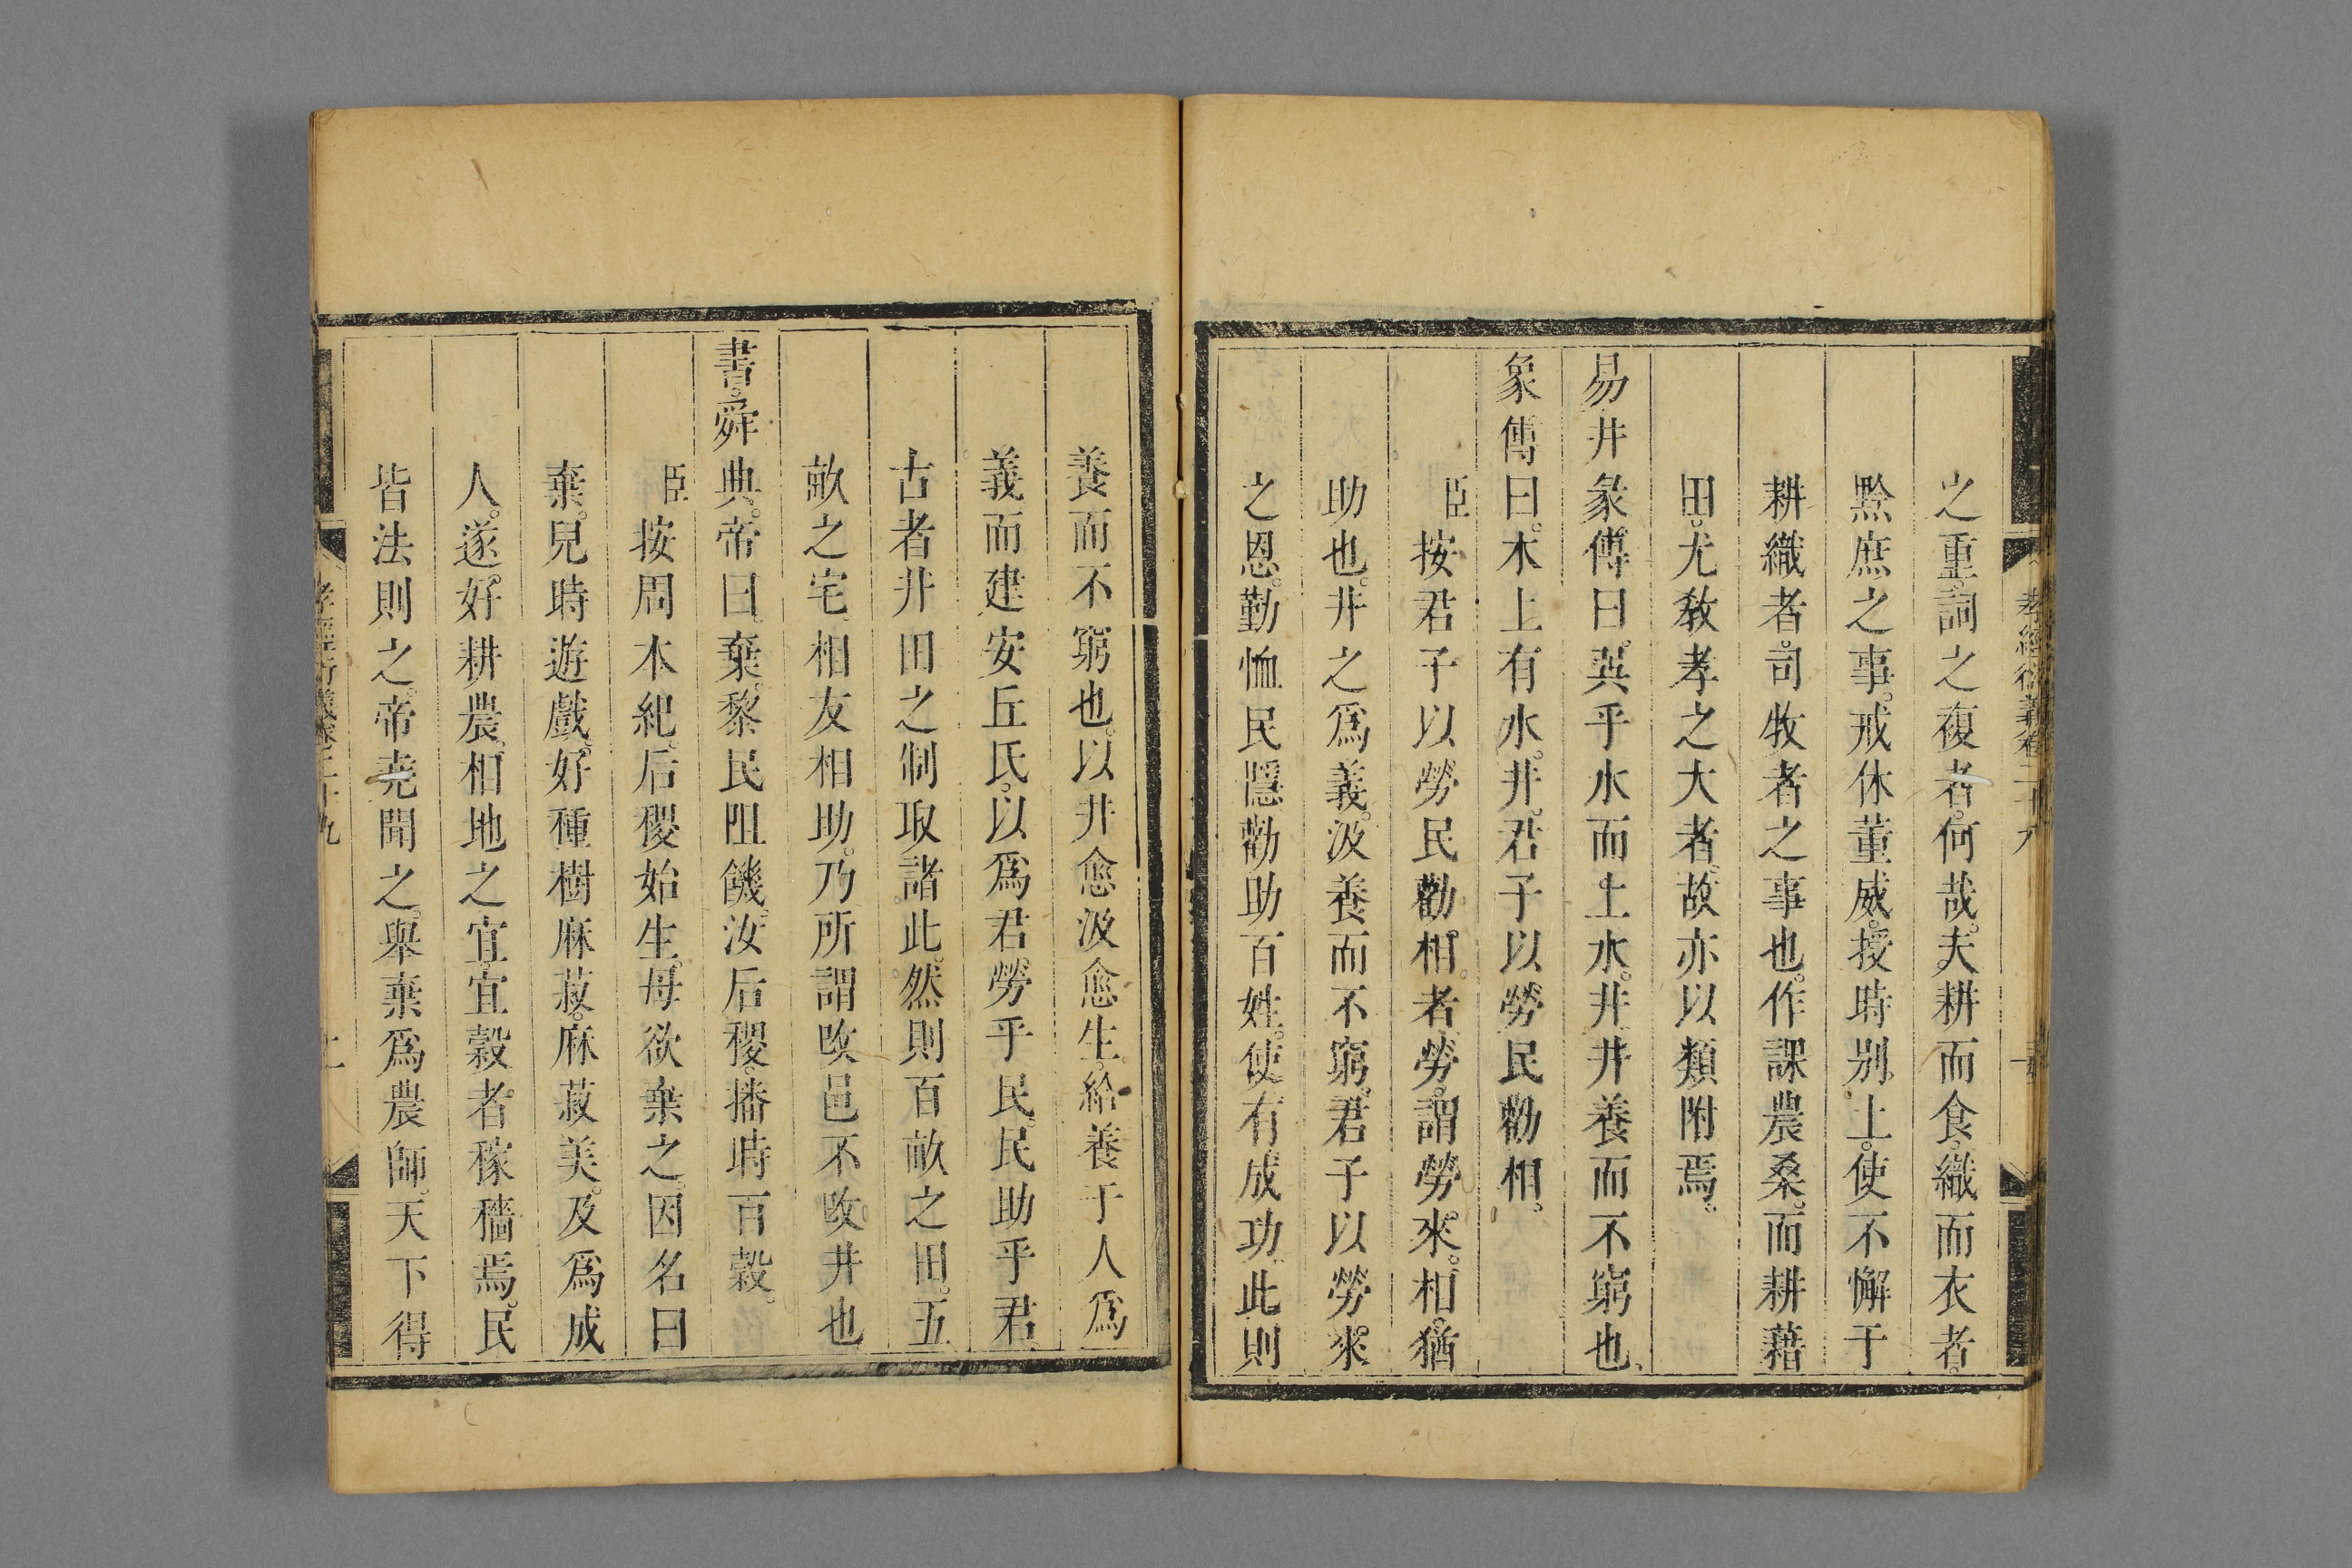 之重詞之複者何哉夫耕而食織而衣者
黔庶之事戒休董威授時別土使不懈于
耕織者司牧者之事也作課農桑而耕藉
田尤教孝之大者故亦以類附焉
易井彖傳曰巽乎水而上水井井養而不窮也
象傳曰木上有水井君子以勞民勸相
臣按君子以勞民勸相者勞謂勞來相猶
助也井之爲義汲養而不窮君子以勞來
之恩勤恤民隱勸助百姓使有成功此則
養而不窮也以井愈汲愈生給養于人爲
義而建安丘氏以爲君勞乎民民助乎君
古者井田之制取諸此然則百畝之田五
畝之宅相友相助乃所謂改邑不改井也
書舜典帝曰棄黎民阻饑汝后稷播時百穀
臣按周本紀后稷始生母欲棄之因名曰
棄兒時遊戲好種樹麻菽麻菽美及爲成
人遂好耕農相地之宜宜穀者稼穡焉民
皆法則之帝堯聞之舉棄爲農師天下得
孝經衍義卷二十九